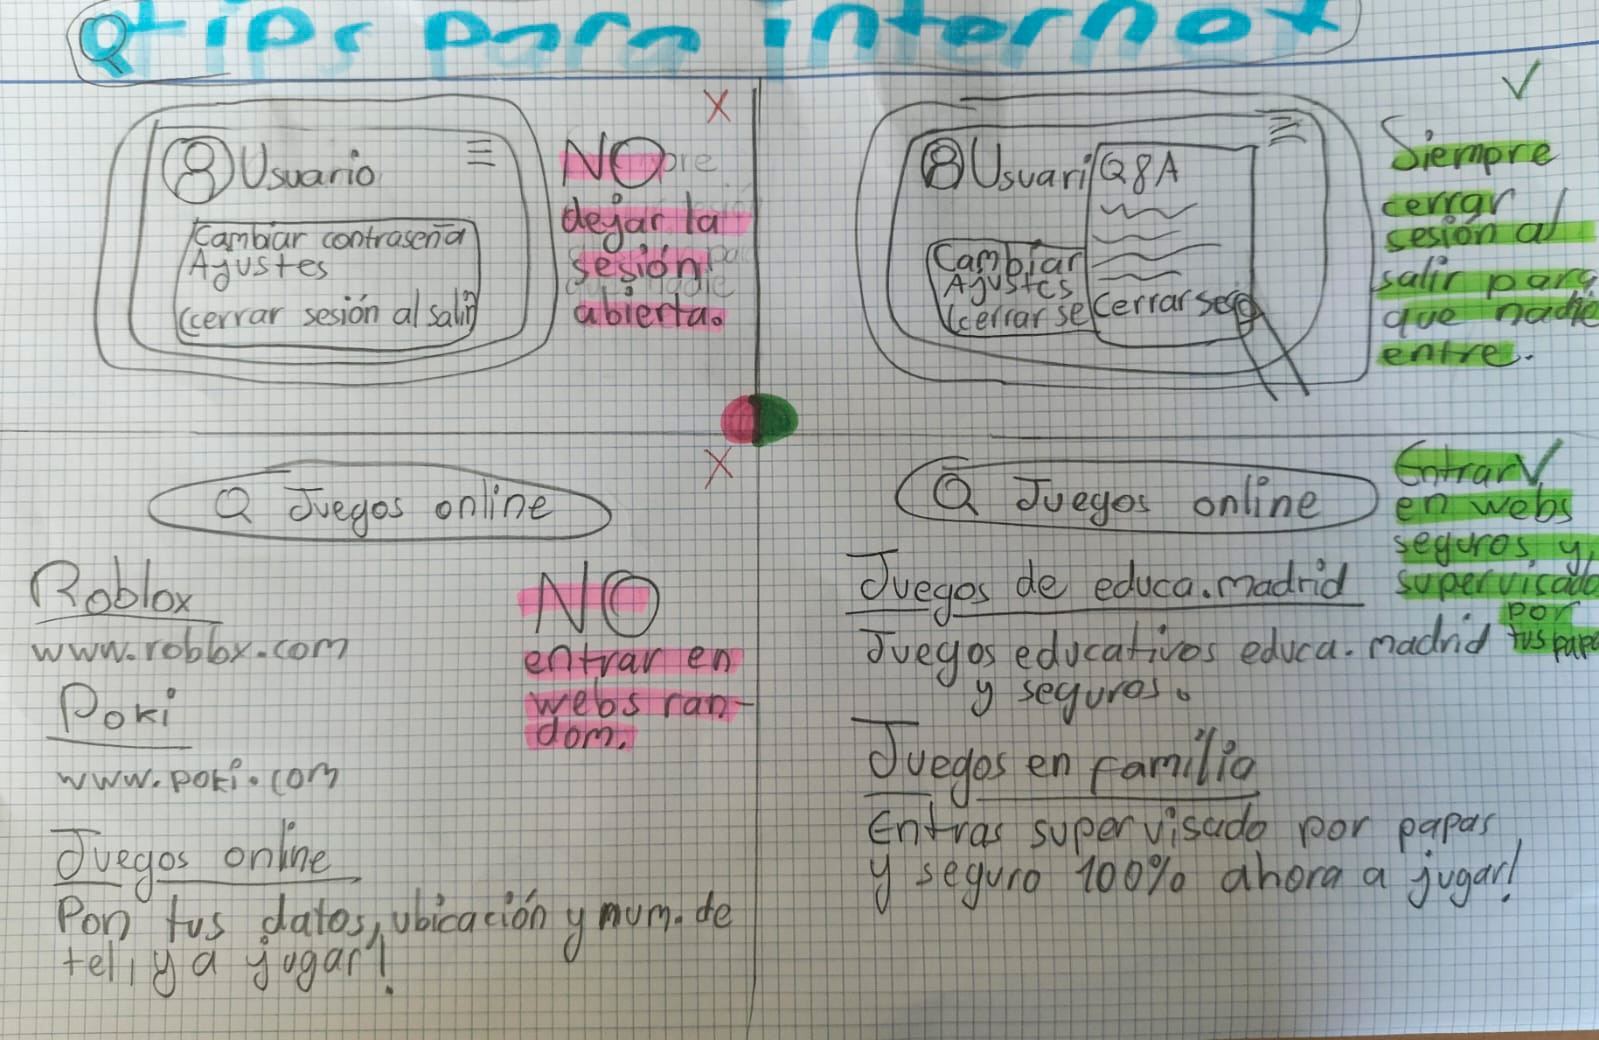 tips para internet
X
Usuario
Cambiar contraseña
Ajustes
cerrar sesión al salir
NO
dejar la
sesión
abierta.
Usuari
Q&A
Cambiar
Ajustes
cerrar se
Cerrar
Siempre
cerrar
sesión al
salir para
que nadie
entre.
X
Juegos online
Roblox
www.roblox.com
Poki
www.poki.com
Juegos online
Pon tus datos, ubicación y num. de
tel, y a jugar!
NO
entrar en
webs ran-
dom.
Juegos online
Entrar
en webs
seguros y
supervisado
por
tus papa
Juegos de educa.madrid
Juegos educativos educa.madrid
y seguros.
Juegos en familia
Entras supervisado por papas
y seguro 100% ahora a jugar!